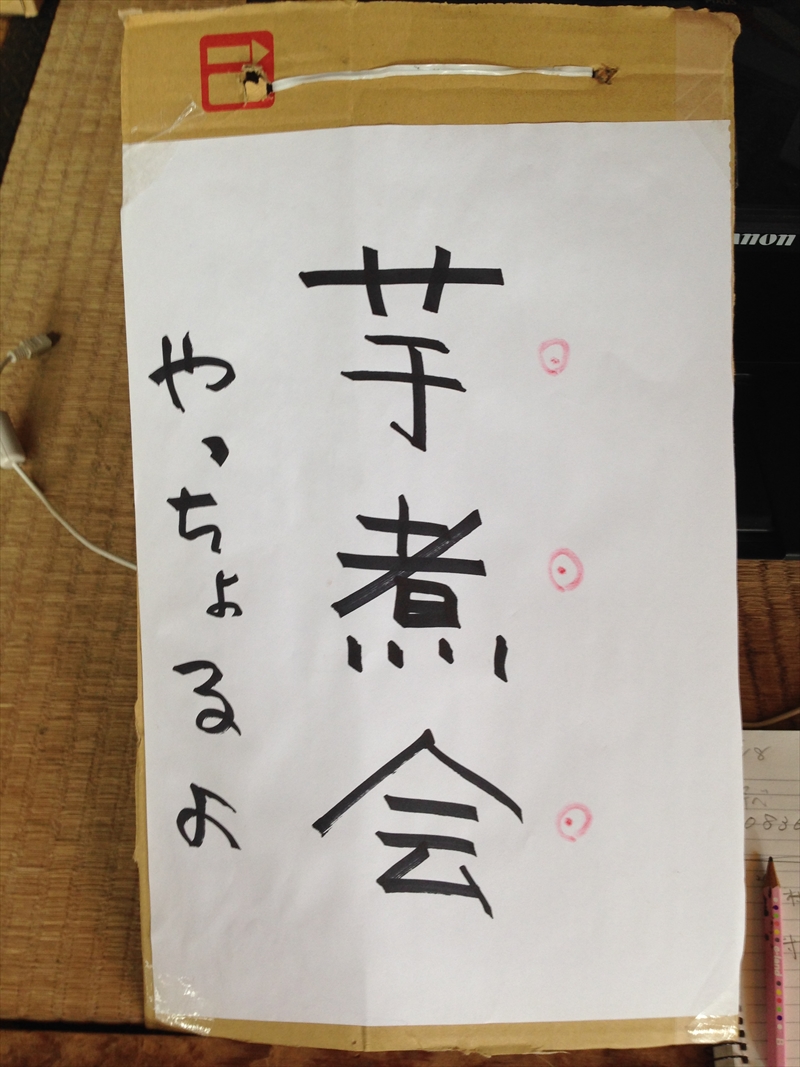 芋煮会
やっちょるよ
anon